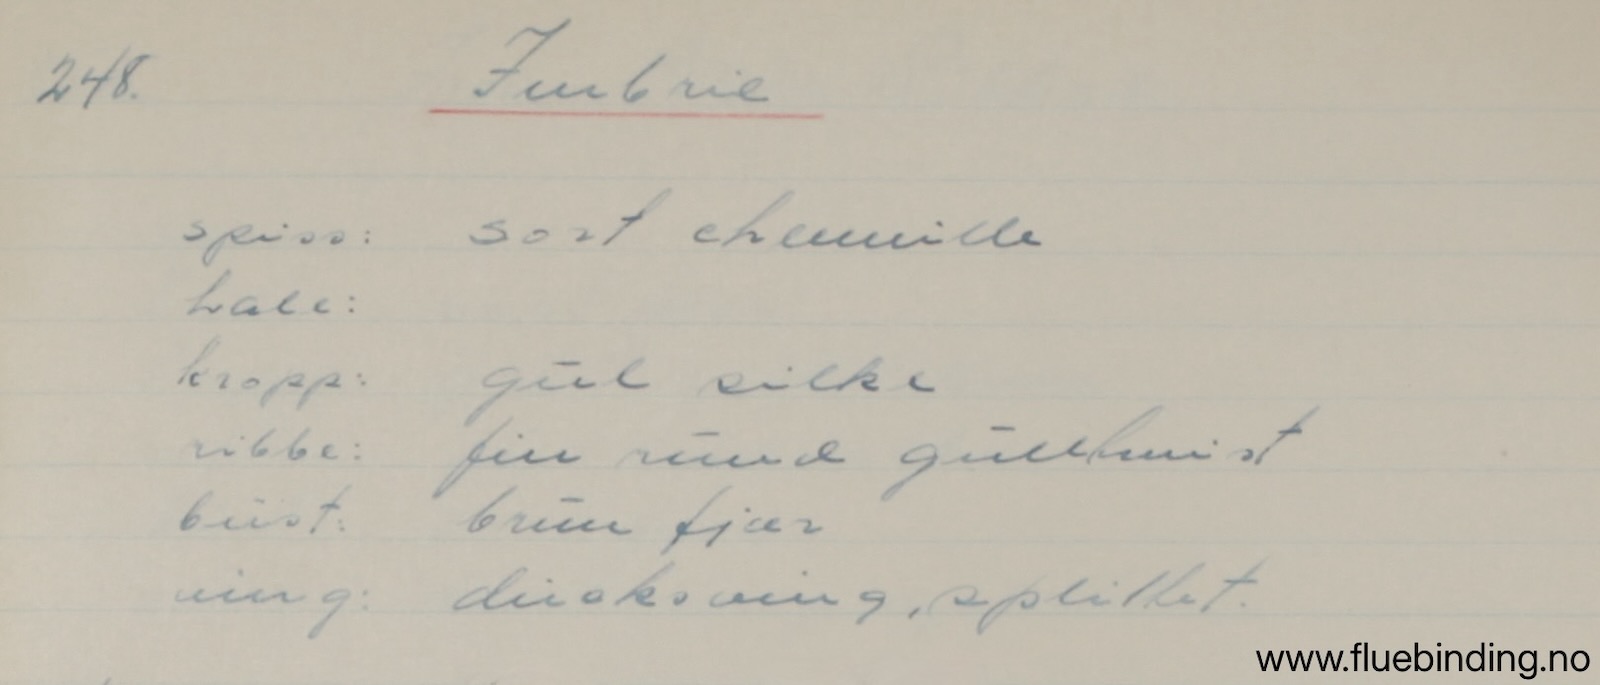 248. Imbrie
spiss: sort chenille
hale:
kropp: gul silke
ribbe: fin rund gulltvist
bust: brun fjær
ving: ducksving, splittet.
www.fluebinding.no